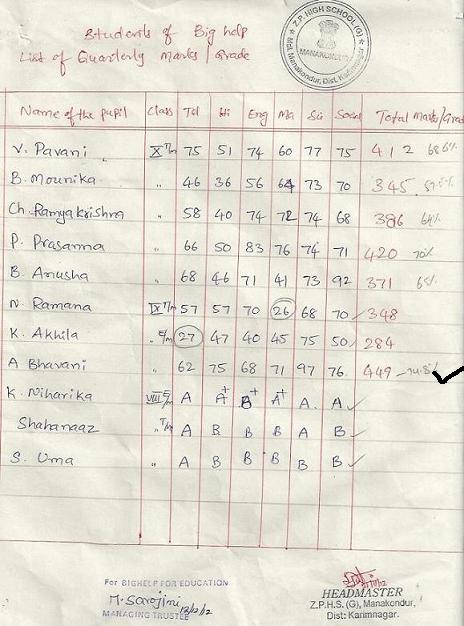 Students of Big help
List of Quarterly Marks / Grade
Z.P. HIGH SCHOOL (G)
MANAKONDUR
Mdl. Manakondur, Dist. Karimnagar.
Name of the pupil Class Tel Hi Eng Ma Sci Social Total Marks/Grade
V. Pavani X T/m 75 51 74 60 77 75 412 68.6%
B. Mounika " 46 36 56 64 73 70 345 57.5%
Ch. Ramyakrishna " 58 40 74 72 74 68 386 64%
P. Prasanna " 66 50 83 76 74 71 420 70%
B. Anusha " 68 46 71 41 73 92 371 65%
N. Ramana IX T/m 57 57 70 26 68 70 348
K. Akhila " E/m 27 47 40 45 75 50 284
A Bhavani " 62 75 68 71 97 76 449 - 74.8%
K. Niharika VIII E/m A A+ B+ A+ A A
Shahanaaz " T/m A B B B A B
S. Uma " A B B B B B
For BIGHELP FOR EDUCATION
M. Sarojini 12/2/12
MANAGING TRUSTEE
HEADMASTER
Z.P.H.S. (G), Manakondur,
Dist: Karimnagar.